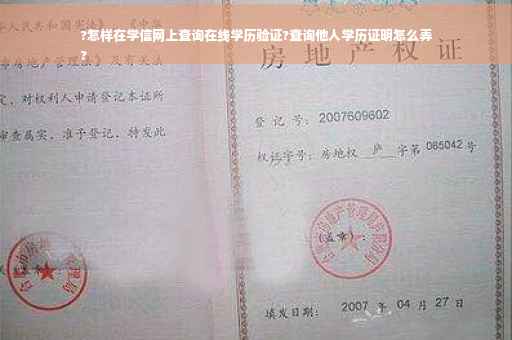 ?怎样在学信网上查询在线学历验证?查询他人学历证明怎么弄
?
人民共和国宪法》
房地产管理法》及有关法
定，对权利人申请登记本证所
审查属实，准予登记，特发此
房 地 产 权
登 记 号： 2007609602
权证字号：房地权 庐 字第 085042 号
(盖章)：
填发日期： 2007 年 04 月 27 日